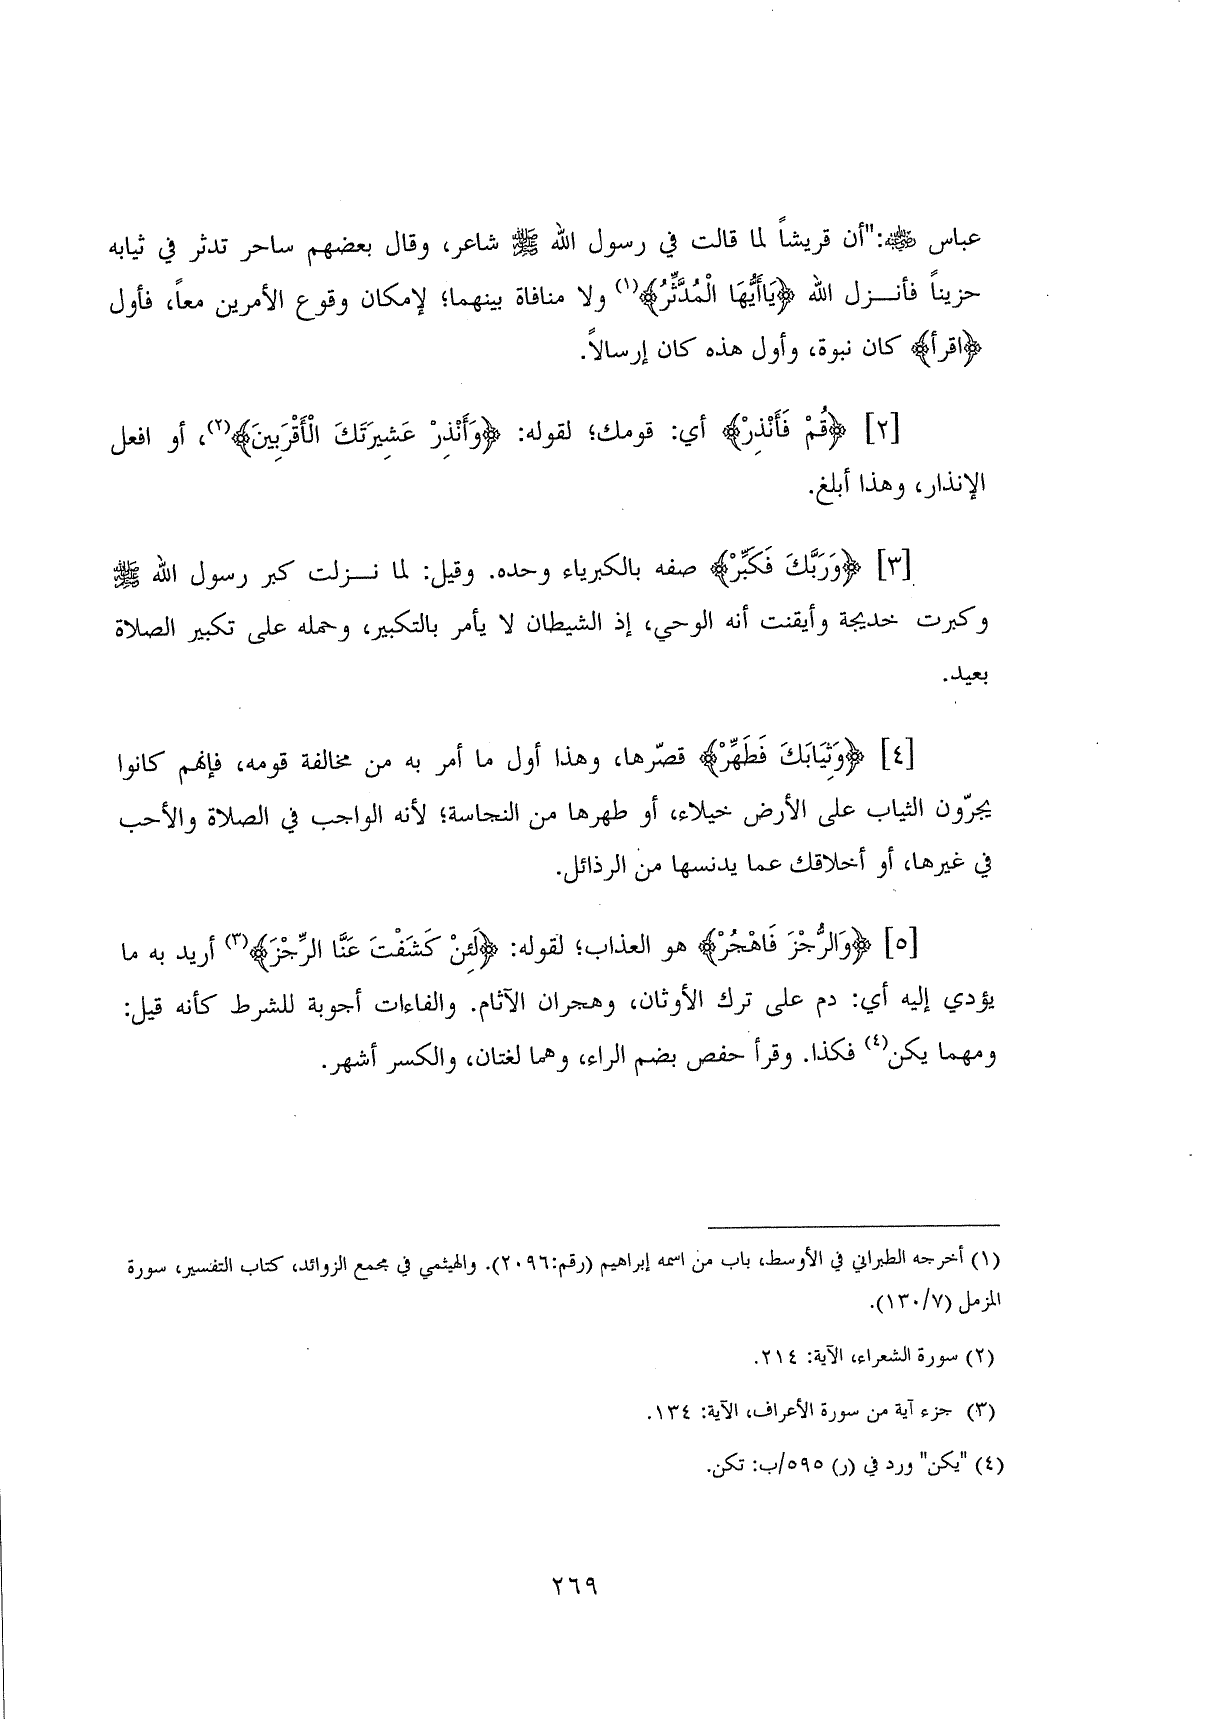 عباس ﵁:"أن قريشاً لما قالت في رسول الله ﷺ شاعر، وقال بعضهم ساحر تدثر في ثيابه
حزيناً فأنـزل الله ﴿يَاأَيُّهَا الْمُدَّثِّرُ﴾(١) ولا منافاة بينهما؛ لإمكان وقوع الأمرين معاً، فأول
﴿اقرأ﴾ كان نبوة، وأول هذه كان إرسالاً.
[٢] ﴿قُمْ فَأَنْذِرْ﴾ أي: قومك؛ لقوله: ﴿وَأَنْذِرْ عَشِيرَتَكَ الْأَقْرَبِينَ﴾(٢)، أو افعل
الإنذار، وهذا أبلغ.
[٣] ﴿وَرَبَّكَ فَكَبِّرْ﴾ صفه بالكبرياء وحده. وقيل: لما نـزلت كبر رسول الله ﷺ
وكبرت خديجة وأيقنت أنه الوحي، إذ الشيطان لا يأمر بالتكبير، وحمله على تكبير الصلاة
بعيد.
[٤] ﴿وَثِيَابَكَ فَطَهِّرْ﴾ قصّرها، وهذا أول ما أمر به من مخالفة قومه، فإنهم كانوا
يجرّون الثياب على الأرض خيلاء، أو طهرها من النجاسة؛ لأنه الواجب في الصلاة والأحب
في غيرها، أو أخلاقك عما يدنسها من الرذائل.
[٥] ﴿وَالرُّجْزَ فَاهْجُرْ﴾ هو العذاب؛ لقوله: ﴿لَئِنْ كَشَفْتَ عَنَّا الرِّجْزَ﴾(٣) أريد به ما
يؤدي إليه أي: دم على ترك الأوثان، وهجران الآثام. والفاءات أجوبة للشرط كأنه قيل:
ومهما يكن(٤) فكذا. وقرأ حفص بضم الراء، وهما لغتان، والكسر أشهر.
(١) أخرجه الطبراني في الأوسط، باب من اسمه إبراهيم (رقم:٢٠٩٦). والهيثمي في مجمع الزوائد، كتاب التفسير، سورة
المزمل (١٣٠/٧).
(٢) سورة الشعراء، الآية: ٢١٤.
(٣) جزء آية من سورة الأعراف، الآية: ١٣٤.
(٤) "يكن" ورد في (ر) ٥٩٥/ب: تكن.
٢٦٩